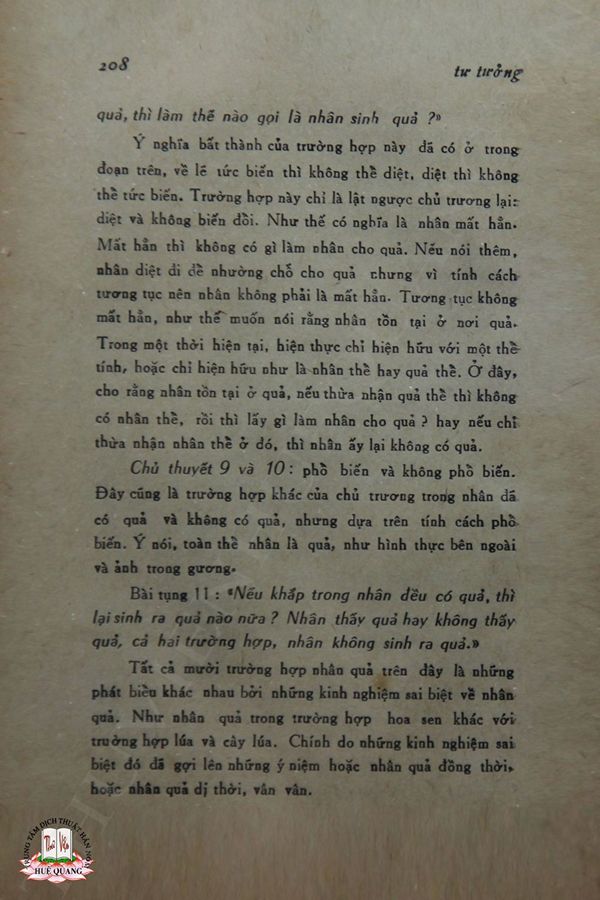 208
tư tưởng
quả, thì làm thế nào gọi là nhân sinh quả ?»
Ý nghĩa bất thành của trường hợp này đã có ở trong
đoạn trên, về lẽ tức biến thì không thể diệt, diệt thì không
thể tức biến. Trường hợp này chỉ là lật ngược chủ trương lại:
diệt và không biến đổi. Như thế có nghĩa là nhân mất hẳn.
Mất hẳn thì không có gì làm nhân cho quả. Nếu nói thêm,
nhân diệt đi để nhường chỗ cho quả nhưng vì tính cách
tương tục nên nhân không phải là mất hẳn. Tương tục không
mất hẳn, như thế muốn nói rằng nhân tồn tại ở nơi quả.
Trong một thời hiện tại, hiện thực chỉ hiện hữu với một thể
tính, hoặc chỉ hiện hữu như là nhân thể hay quả thể. Ở đây,
cho rằng nhân tồn tại ở quả, nếu thừa nhận quả thể thì không
có nhân thể, rồi thì lấy gì làm nhân cho quả ? hay nếu chỉ
thừa nhận nhân thể ở đó, thì nhân ấy lại không có quả.
Chủ thuyết 9 và 10 : phổ biến và không phổ biến.
Đây cũng là trường hợp khác của chủ trương trong nhân đã
có quả và không có quả, nhưng dựa trên tính cách phổ
biến. Ý nói, toàn thể nhân là quả, như hình thực bên ngoài
và ảnh trong gương.
Bài tụng 11 : «Nếu khắp trong nhân đều có quả, thì
lại sinh ra quả nào nữa ? Nhân thấy quả hay không thấy
quả, cả hai trường hợp, nhân không sinh ra quả.»
Tất cả mười trường hợp nhân quả trên đây là những
phát biểu khác nhau bởi những kinh nghiệm sai biệt về nhân
quả. Như nhân quả trong trường hợp hoa sen khác với
trường hợp lúa và cây lúa. Chính do những kinh nghiệm sai
biệt đó đã gợi lên những ý niệm hoặc nhân quả đồng thời,
hoặc nhân quả dị thời, vân vân.
TRUNG TÂM DỊCH THUẬT HÁN NÔM
HUỆ QUANG